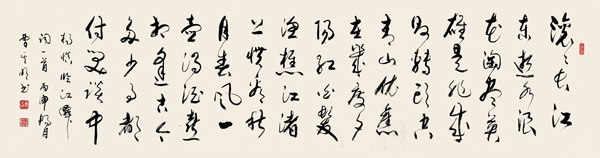 滚々长江
东逝水浪
花淘尽英
雄是非成
败转头空
青山依旧
在几度夕
阳红白发
渔樵江渚
上惯看秋
月春风一
壶浊酒喜
相逢古今
多少事都
付笑谈中
杨慎临江仙
词一首丙申